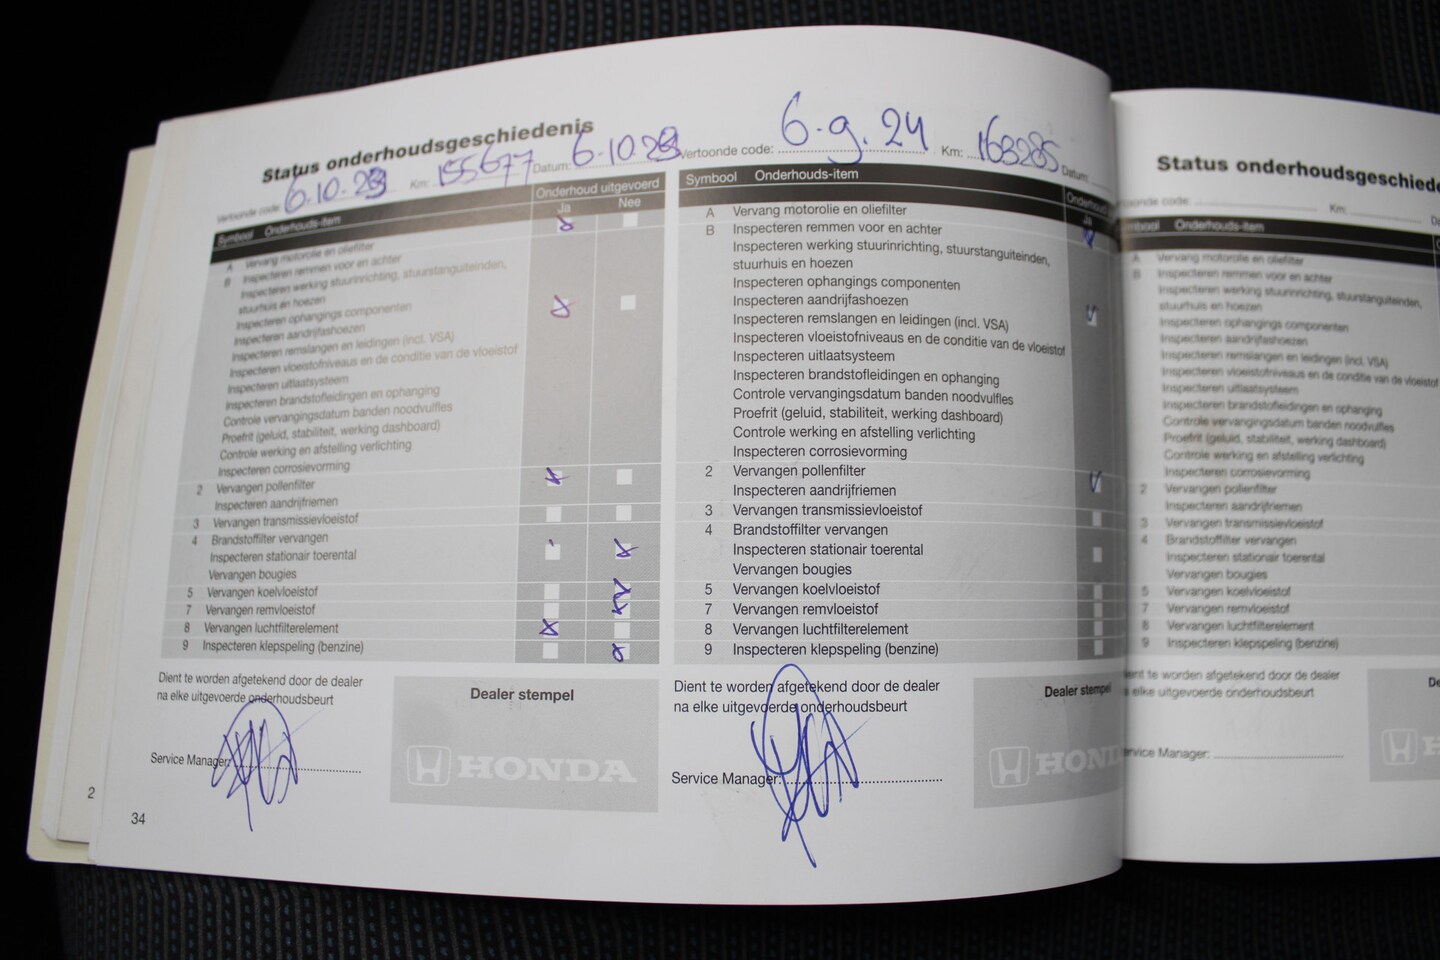 Status onderhoudsgeschiedenis
Vertoonde code: 6.10.23 Km: 155677 Datum: 6.10.23
Symbool Onderhouds-item Onderhoud uitgevoerd
Ja Nee
A Vervang motorolie en oliefilter
B Inspecteren remmen voor en achter
Inspecteren werking stuurinrichting, stuurstanguiteinden,
stuurhuis en hoezen
Inspecteren ophangings componenten
Inspecteren aandrijfashoezen
Inspecteren remslangen en leidingen (incl. VSA)
Inspecteren vloeistofniveaus en de conditie van de vloeistof
Inspecteren uitlaatsysteem
Inspecteren brandstofleidingen en ophanging
Controle vervangingsdatum banden noodvulfles
Proefrit (geluid, stabiliteit, werking dashboard)
Controle werking en afstelling verlichting
Inspecteren corrosievorming
2 Vervangen pollenfilter
Inspecteren aandrijfriemen
3 Vervangen transmissievloeistof
4 Brandstoffilter vervangen
Inspecteren stationair toerental
Vervangen bougies
5 Vervangen koelvloeistof
7 Vervangen remvloeistof
8 Vervangen luchtfilterelement
9 Inspecteren klepspeling (benzine)
Dient te worden afgetekend door de dealer
na elke uitgevoerde onderhoudsbeurt
Service Manager:
Dealer stempel
HONDA
2
34
Vertoonde code: 6.9.24 Km: 163285 Datum:
Symbool Onderhouds-item
Ja
A Vervang motorolie en oliefilter
B Inspecteren remmen voor en achter
Inspecteren werking stuurinrichting, stuurstanguiteinden,
stuurhuis en hoezen
Inspecteren ophangings componenten
Inspecteren aandrijfashoezen
Inspecteren remslangen en leidingen (incl. VSA)
Inspecteren vloeistofniveaus en de conditie van de vloeistof
Inspecteren uitlaatsysteem
Inspecteren brandstofleidingen en ophanging
Controle vervangingsdatum banden noodvulfles
Proefrit (geluid, stabiliteit, werking dashboard)
Controle werking en afstelling verlichting
Inspecteren corrosievorming
2 Vervangen pollenfilter
Inspecteren aandrijfriemen
3 Vervangen transmissievloeistof
4 Brandstoffilter vervangen
Inspecteren stationair toerental
Vervangen bougies
5 Vervangen koelvloeistof
7 Vervangen remvloeistof
8 Vervangen luchtfilterelement
9 Inspecteren klepspeling (benzine)
Dient te worden afgetekend door de dealer
na elke uitgevoerde onderhoudsbeurt
Service Manager:
Dealer stempel
HOND
Status onderhoudsgeschiede
code: Km:
Onderhouds-item
A Vervang motorolie en oliefilter
B Inspecteren remmen voor en achter
Inspecteren werking stuurinrichting, stuurstanguiteinden,
stuurhuis en hoezen
Inspecteren ophangings componenten
Inspecteren aandrijfashoezen
Inspecteren remslangen en leidingen (incl. VSA)
Inspecteren vloeistofniveaus en de conditie van de vloeistof
Inspecteren uitlaatsysteem
Inspecteren brandstofleidingen en ophanging
Controle vervangingsdatum banden noodvulfles
Proefrit (geluid, stabiliteit, werking dashboard)
Controle werking en afstelling verlichting
Inspecteren corrosievorming
2 Vervangen pollenfilter
Inspecteren aandrijfriemen
3 Vervangen transmissievloeistof
4 Brandstoffilter vervangen
Inspecteren stationair toerental
Vervangen bougies
5 Vervangen koelvloeistof
7 Vervangen remvloeistof
8 Vervangen luchtfilterelement
9 Inspecteren klepspeling (benzine)
te worden afgetekend door de dealer
elke uitgevoerde onderhoudsbeurt
Manager: